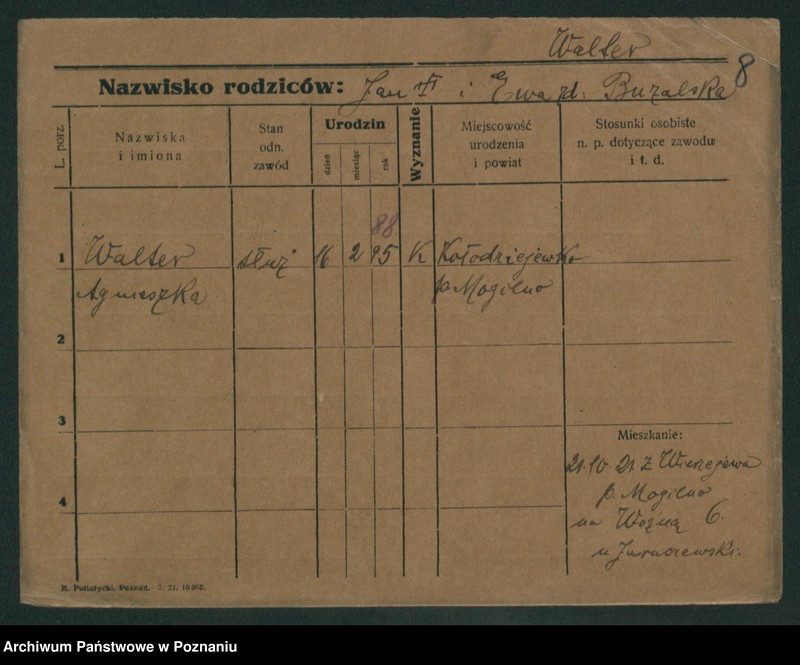 Walter
8
Nazwisko rodziców: Jan † i Ewa zd. Buzalska
L. porz.
Nazwiska
i imiona
Stan
odn.
zawód
Urodzin
dzień
miesiąc
rok
Wyznanie
Miejscowość
urodzenia
i powiat
Stosunki osobiste
n. p. dotyczące zawodu
i t. d.
88
1 Walter służ 16 2 95 K Kołodziejewko
Agnieszka p. Mogilno
2
3
Mieszkanie:
21.10 21. z Wiecejewa
p. Mogilno
4
na Woźną 6.
u
R. Pollatycki, Poznań. 7. 21. 10 000.
Archiwum Państwowe w Poznaniu